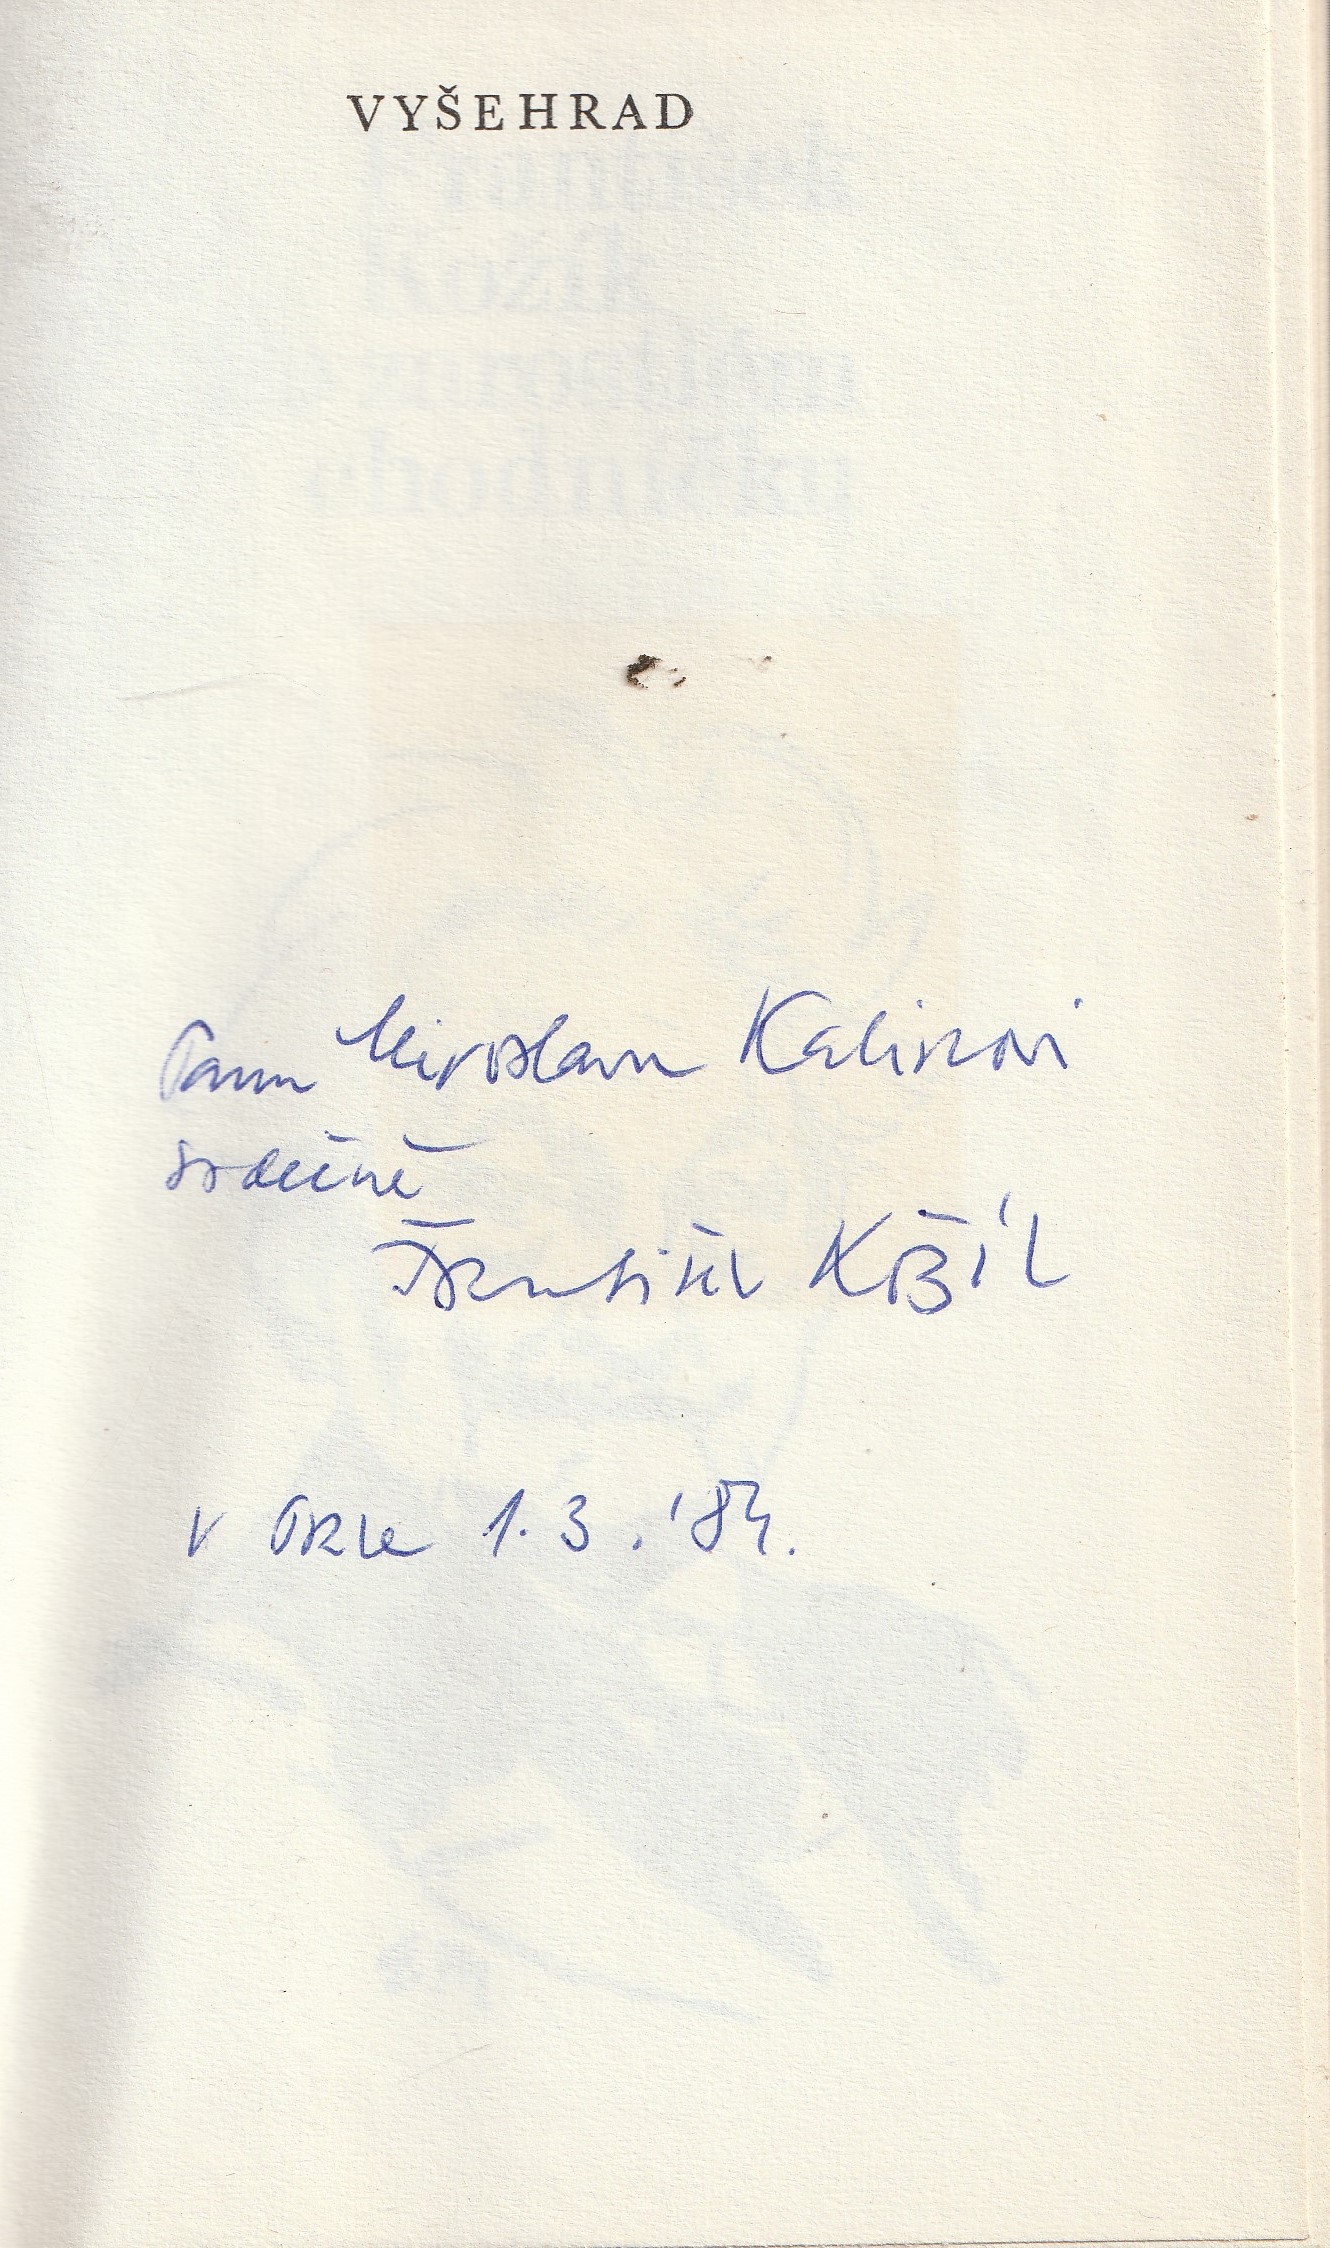 VYŠEHRAD
Panu Miroslavu Kalinovi
srdečně
František Kožík
V Praze 1.3.'84.